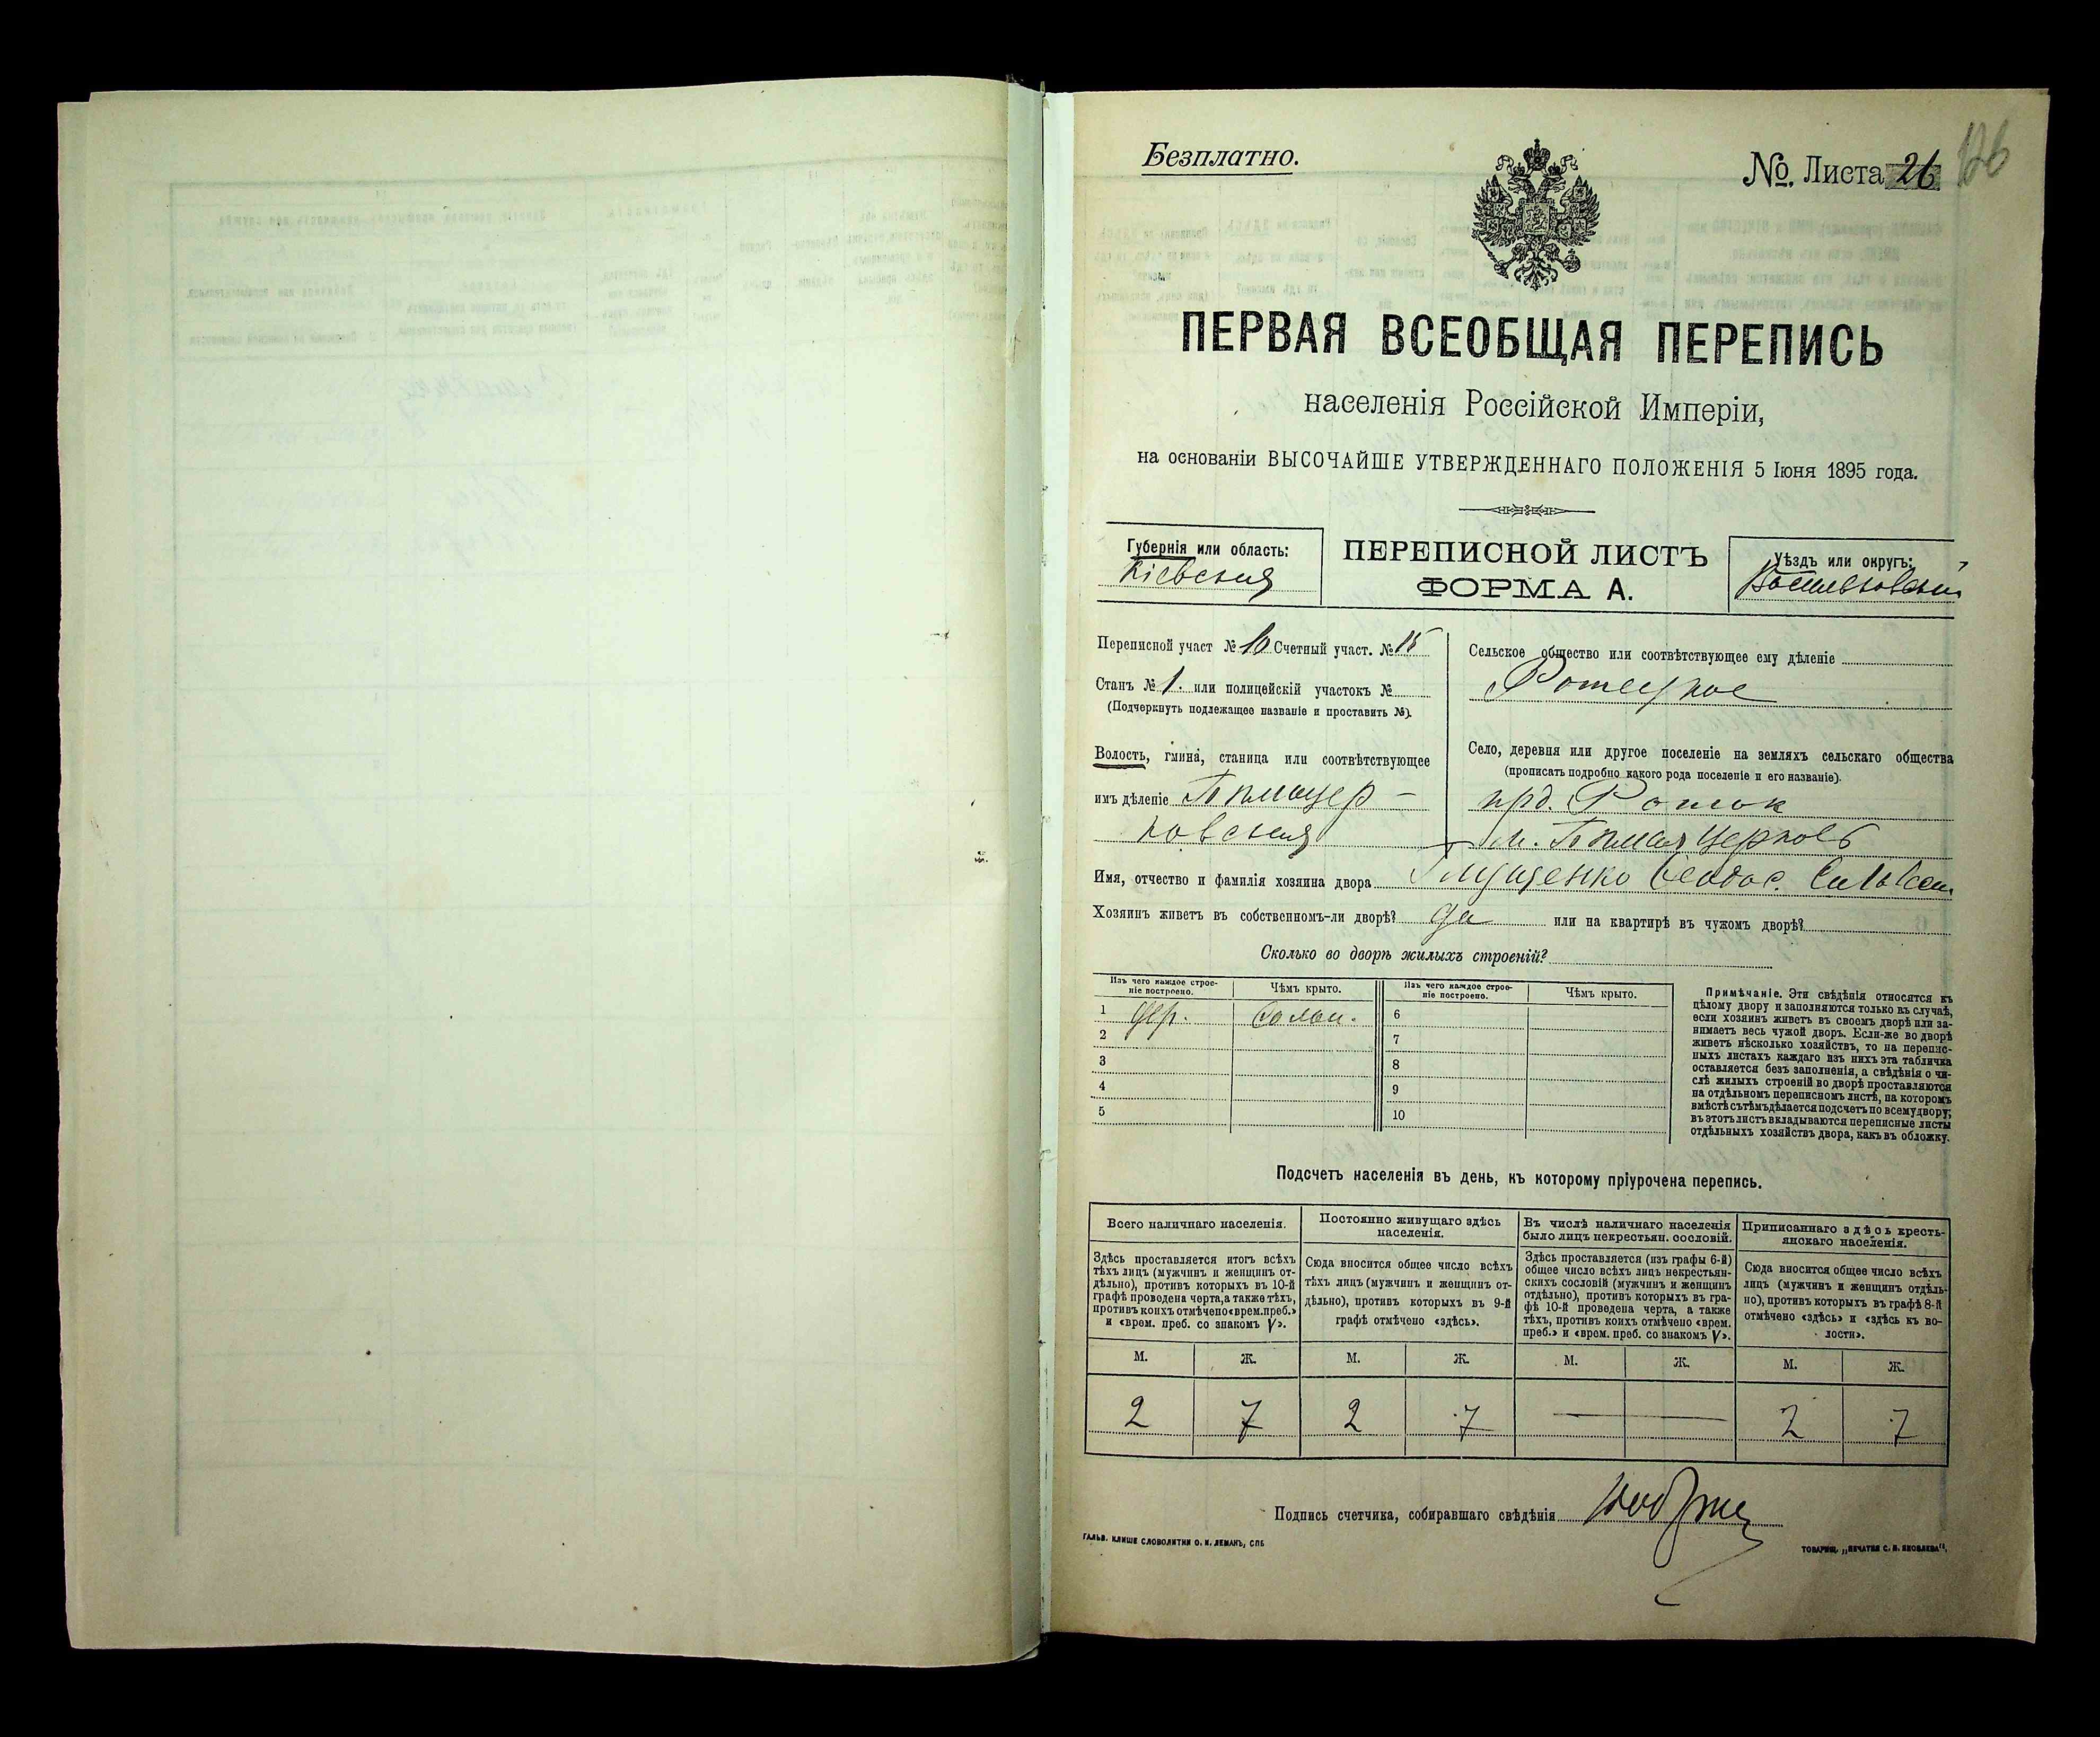 Безплатно.
№ Листа 26
126
ПЕРВАЯ ВСЕОБЩАЯ ПЕРЕПИСЬ
населенія Россійской Имперіи,
на основаніи ВЫСОЧАЙШЕ УТВЕРЖДЕННАГО ПОЛОЖЕНІЯ 5 Іюня 1895 года.
Губернія или область:
Кіевская
ПЕРЕПИСНОЙ ЛИСТЪ
ФОРМА А.
Уѣздъ или округъ:
Васильковскій
Переписной участ № 10 Счетный участ. № 15
Станъ № 1. или полицейскій участокъ №
(Подчеркнуть подлежащее названіе и проставить №).
Волость, гмина, станица или соотвѣтствующее
имъ дѣленіе Бѣлоцер-
ковская
Сельское общество или соотвѣтствующее ему дѣленіе
Ротецкое
Село, деревня или другое поселеніе на земляхъ сельскаго общества
(прописать подробно какого рода поселеніе и его названіе).
прд. Роток
м. Бѣлая Церковь
Имя, отчество и фамилія хозяина двора
Хозяинъ живетъ въ собственномъ-ли дворѣ? да или на квартирѣ въ чужомъ дворѣ?
Сколько во дворѣ жилыхъ строеній?
Изъ чего каждое строе-
ніе построено.
Чѣмъ крыто.
Изъ чего каждое строе-
ніе построено.
Чѣмъ крыто.
1 дер. Солом. 6
2 7
3 8
4 9
5 10
Примѣчаніе. Эти свѣдѣнія относятся къ
цѣлому двору и заполняются только въ случаѣ,
если хозяинъ живетъ въ своемъ дворѣ или за-
нимаетъ весь чужой дворъ. Если-же во дворѣ
живетъ нѣсколько хозяйствъ, то на перепис-
ныхъ листахъ каждаго изъ нихъ эта табличка
оставляется безъ заполненія, а свѣдѣнія о чи-
слѣ жилыхъ строеній во дворѣ проставляются
на отдѣльномъ переписномъ листѣ, на которомъ
вмѣстѣ съ тѣмъ дѣлается подсчетъ по всему двору;
въ этотъ листъ вкладываются переписные листы
отдѣльныхъ хозяйствъ двора, какъ въ обложку.
Подсчетъ населенія въ день, къ которому пріурочена перепись.
Всего наличнаго населенія.
Здѣсь проставляется итогъ всѣхъ
тѣхъ лицъ (мужчинъ и женщинъ от-
дѣльно), противъ которыхъ въ 10-й
графѣ проведена черта, а также тѣхъ,
противъ коихъ отмѣчено «врем. преб.»
и «врем. преб. со знакомъ V».
Постоянно живущаго здѣсь
населенія.
Сюда вносится общее число всѣхъ
тѣхъ лицъ (мужчинъ и женщинъ от-
дѣльно), противъ которыхъ въ 9-й
графѣ отмѣчено «здѣсь».
Въ числѣ наличнаго населенія
было лицъ некрестьян. сословій.
Здѣсь проставляется (изъ графы 6-й)
общее число всѣхъ лицъ некрестьян-
скихъ сословій (мужчинъ и женщинъ
отдѣльно), противъ которыхъ въ гра-
фѣ 10-й проведена черта, а также
тѣхъ, противъ коихъ отмѣчено «врем.
преб.» и «врем. преб. со знакомъ V».
Приписаннаго здѣсь кресть-
янскаго населенія.
Сюда вносится общее число всѣхъ
лицъ (мужчинъ и женщинъ отдѣль-
но), противъ которыхъ въ графѣ 8-й
отмѣчено «здѣсь» и «здѣсь къ во-
лости».
М. Ж. М. Ж. М. Ж. М. Ж.
2 7 2 7 — — 2 7
Подпись счетчика, собиравшаго свѣдѣнія
ГАЛЬВ. КЛИШЕ СЛОВОЛИТНИ О. И. ЛЕМАНЪ, СПБ
ТОВАРИЩ. „ПЕЧАТНЯ С. П. ЯКОВЛЕВА“.